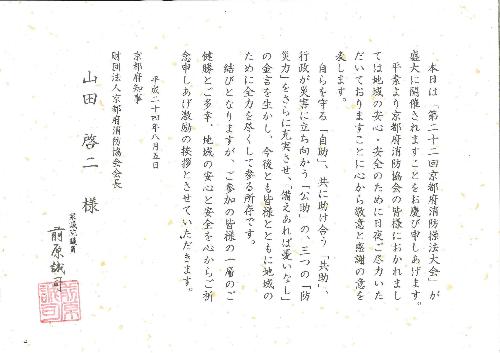 本日は「第二十二回京都府消防操法大会」が
盛大に開催されますことをお慶び申しあげます。
平素より京都府消防協会の皆様におかれまし
ては地域の安心・安全のために日夜ご尽力いた
だいておりますことに心から敬意と感謝の意を
表します。
自らを守る「自助」、共に助け合う「共助」、
行政が災害に立ち向かう「公助」の、三つの「防
災力」をさらに充実させ、「備えあれば憂いなし」
の金言を生かし、今後とも皆様とともに地域の
ために全力を尽くして参る所存です。
結びとなりますが、ご参加の皆様の一層のご
健勝とご多幸、地域の安心と安全を心からご祈
念申しあげ激励の挨拶とさせていただきます。
平成二十四年八月五日
京都府知事
財団法人京都府消防協会会長
山田 啓二 様
衆議院議員
前原誠司